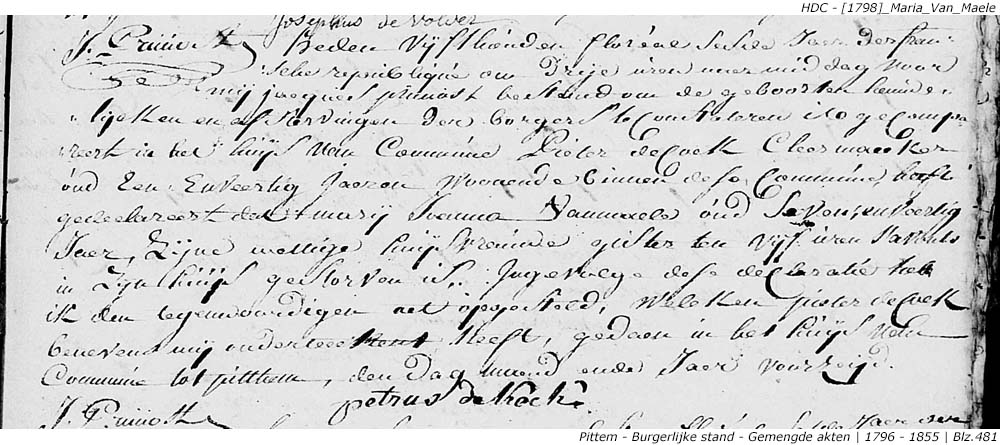 HDC - [1798]_Maria_Van_Maele
Josephus de volder
J. Prinnost Heden vijfthienden floréal sesde Jaer der fran-
sche republique om drije uren naer mid dag voor
mij jacques prinnost bestand om de geboorten houwe-
lijken en afstervingen den borgers te Constateren is gecompa-
reert in het huijs van Commune Pieter deCock Cleermaeker
oud een Enveertig Jaeren woonende binnen dese Commune, heeft
gedeclareert dat mary Joanna Vanmaele oud sevenenveertig
Jaer, Zijne wettige huijsvrauwe gister ten vijf uren s'avonds
in Zijn huijs gestorven is. Ingevolge dese declaratie heb
ik den tegenwoordigen act opgesteld, welcken pieter deCock
benevens mij onderteekent heeft, gedaen in het huijs van
Commune tot pitthem, den dag maend ende Jaer voorseijd.
J. Prinnost petrus de kock
Jaer
Pittem - Burgerlijke stand - Gemengde akten | 1796 - 1855 | Blz.481